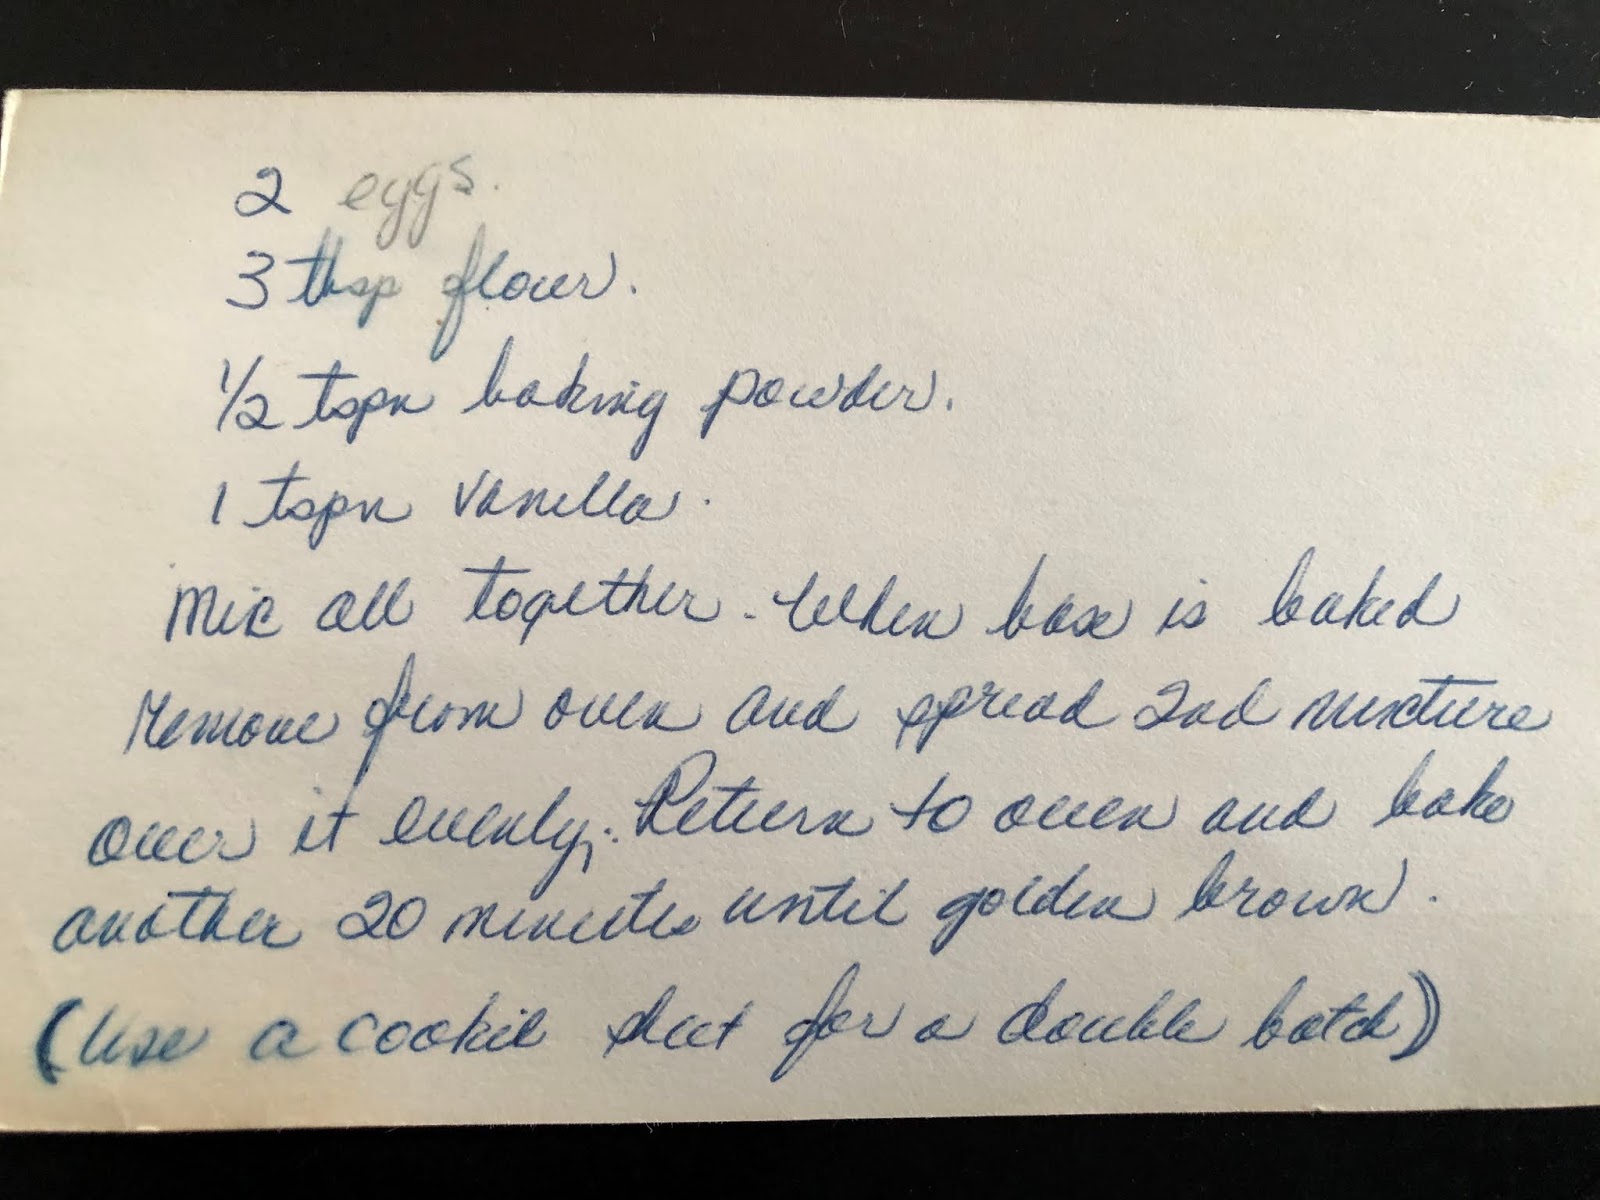 2 eggs.
3 tbsp flour.
1/2 tspn baking powder.
1 tspn vanilla.
Mix all together. When base is baked
remove from oven and spread 2nd mixture
over it evenly. Return to oven and bake
another 20 minutes until golden brown.
(Use a cookie sheet for a double batch)